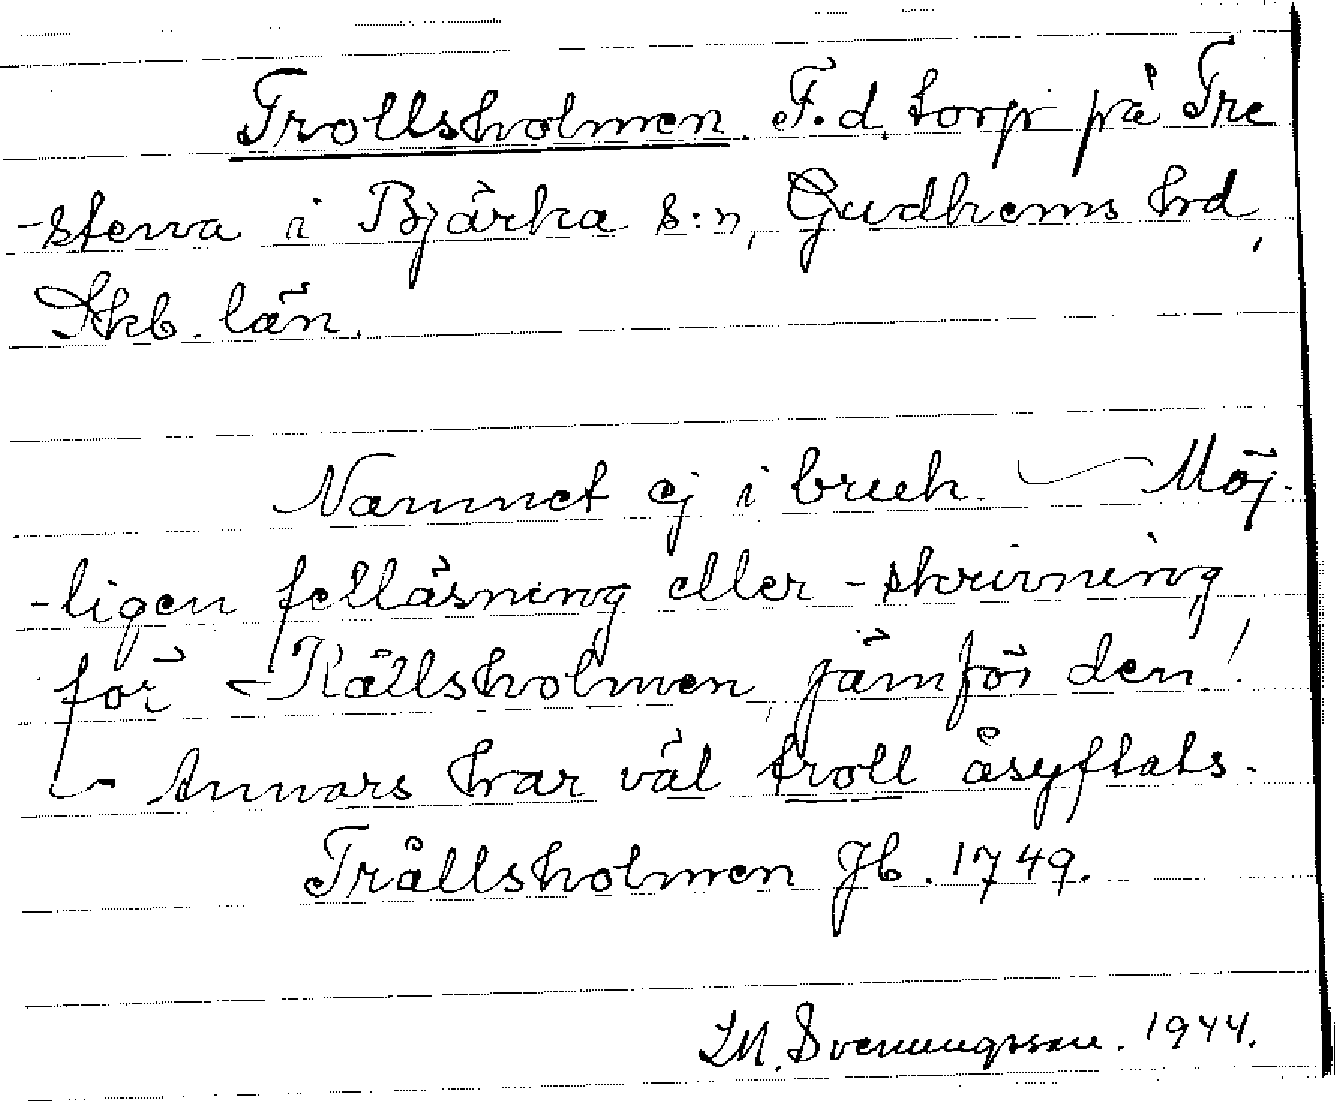 Trollsholmen. F.d. torp på Tre
-stena i Bjärka s:n, Gudhems hd,
Skb. län.
Namnet ej i bruk. — Möj-
-ligen felläsning eller -skrivning
för Kållsholmen, jämför den!
- Annars har väl troll åsyftats.
Trållsholmen Jb. 1749.
LM. Svenungsson. 1944.